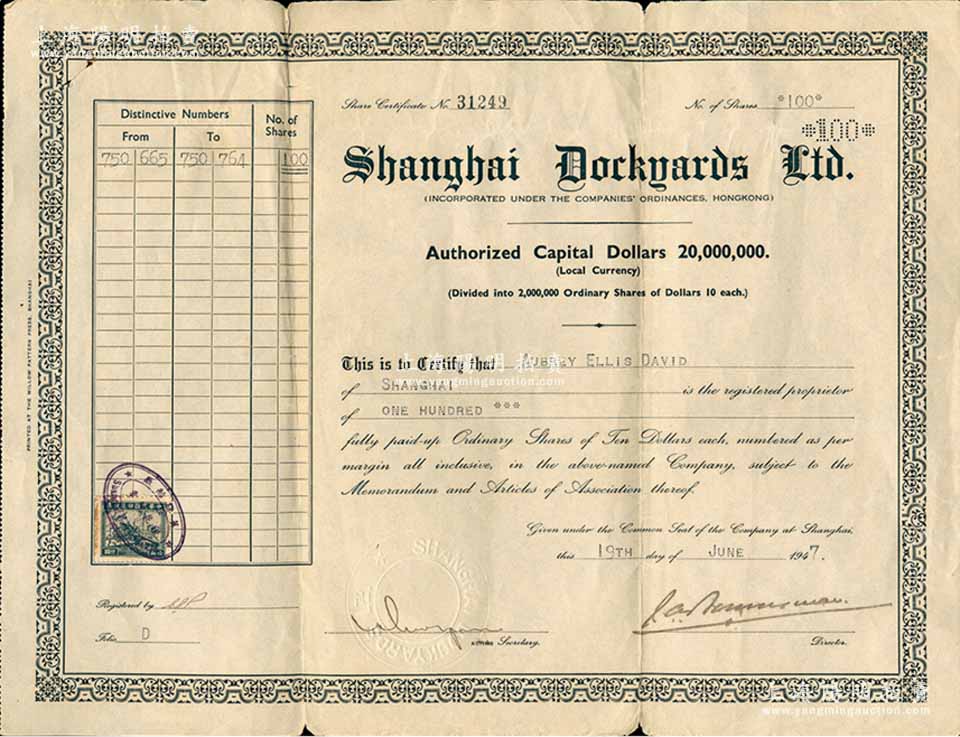 上海陽明拍賣
www.yangmingauction.com
Distinctive Numbers
No. of Shares
From
To
750 665 750 764 100
Share Certificate No. 31249
No. of Shares *100*
*100*
Shanghai Dockyards Ltd.
(INCORPORATED UNDER THE COMPANIES' ORDINANCES, HONGKONG)
Authorized Capital Dollars 20,000,000.
(Local Currency)
(Divided into 2,000,000 Ordinary Shares of Dollars 10 each.)
上海陽明拍賣
www.yangmingauction.com
This is to Certify that ELLIS DAVID
of SHANGHAI is the registered proprietor
of ONE HUNDRED ***
fully paid-up Ordinary Shares of Ten Dollars each, numbered as per
margin all inclusive, in the above-named Company, subject to the
Memorandum and Articles of Association thereof.
Given under the Common Seal of the Company at Shanghai,
this 19TH day of JUNE 1947.
SHANGHAI
Registered by
Folio D
Secretary.
Director.
PRINTED AT THE WILLOW PATTERN PRESS, SHANGHAI
上海陽明拍賣
www.yangmingauction.com